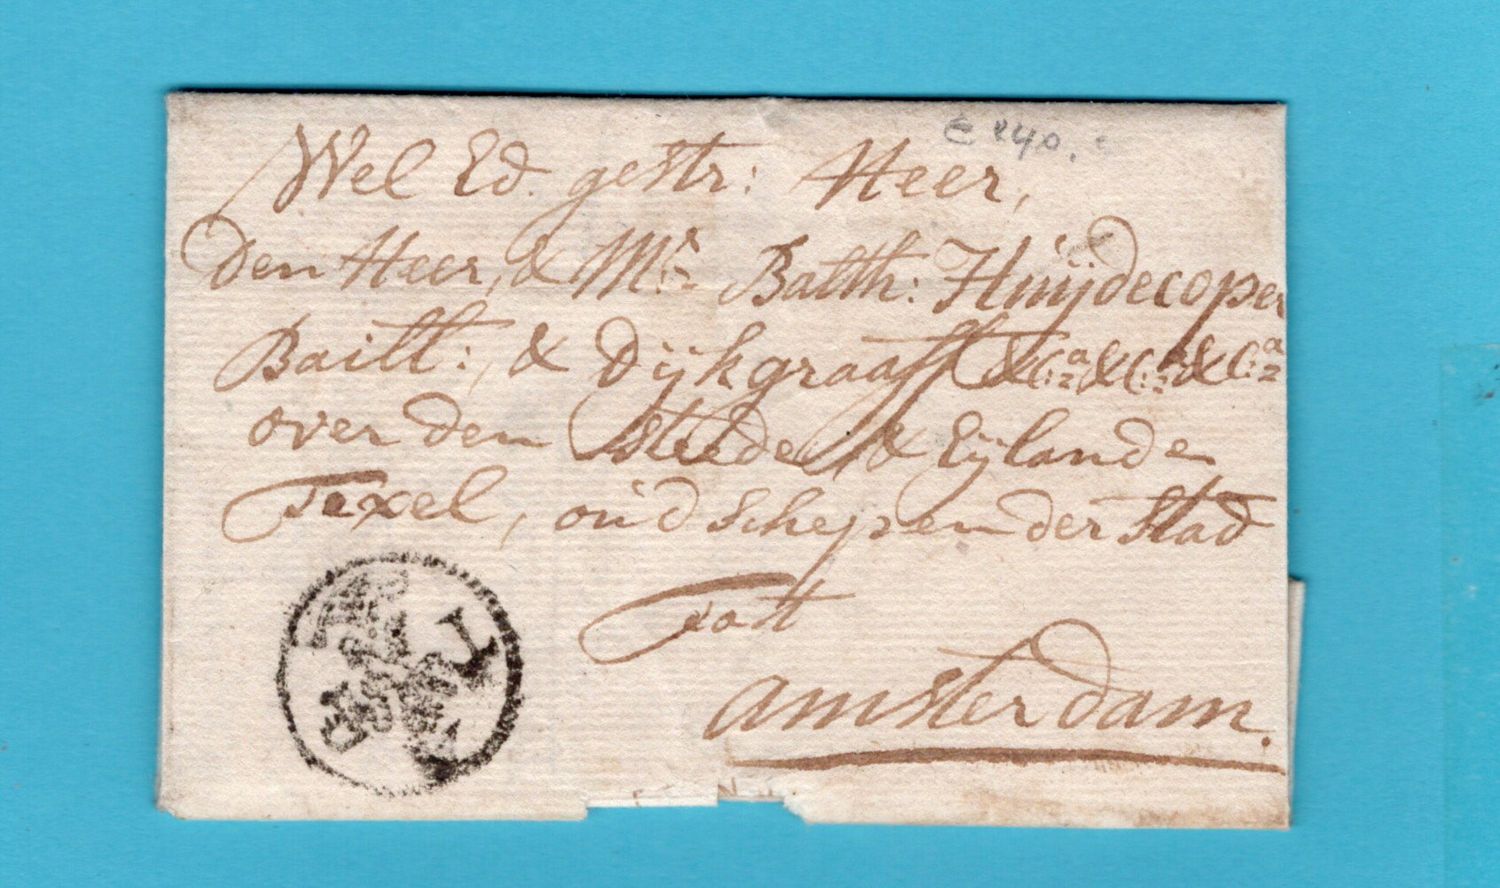 Wel Ed. gestr: Heer,
den Heer, & Mr. Balth: Huijdecoper
Baill: & Dijkgraaff &Ca &Ca &Ca
over den Steede & Eijlande
Texel, oud Schepen der Stad
Tott
Amsterdam.